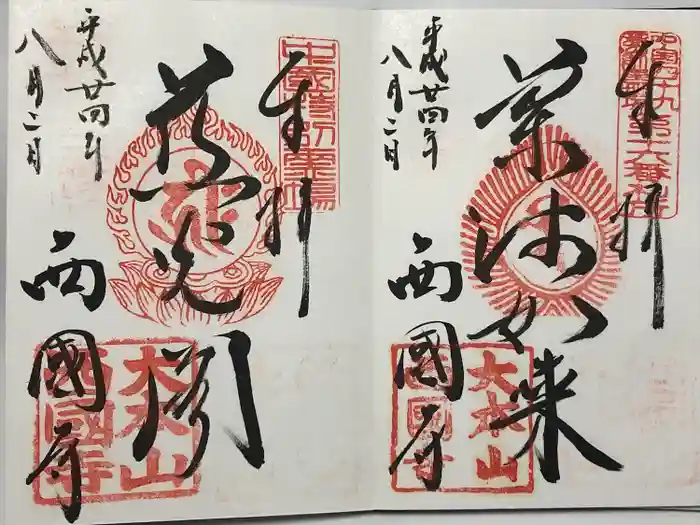 奉拝
薬師如来
平成廿四年
八月二日
西國寺
大本山
西國寺
奉拝
中國特別霊場
平成廿四年
八月二日
西國寺
大本山
西國寺